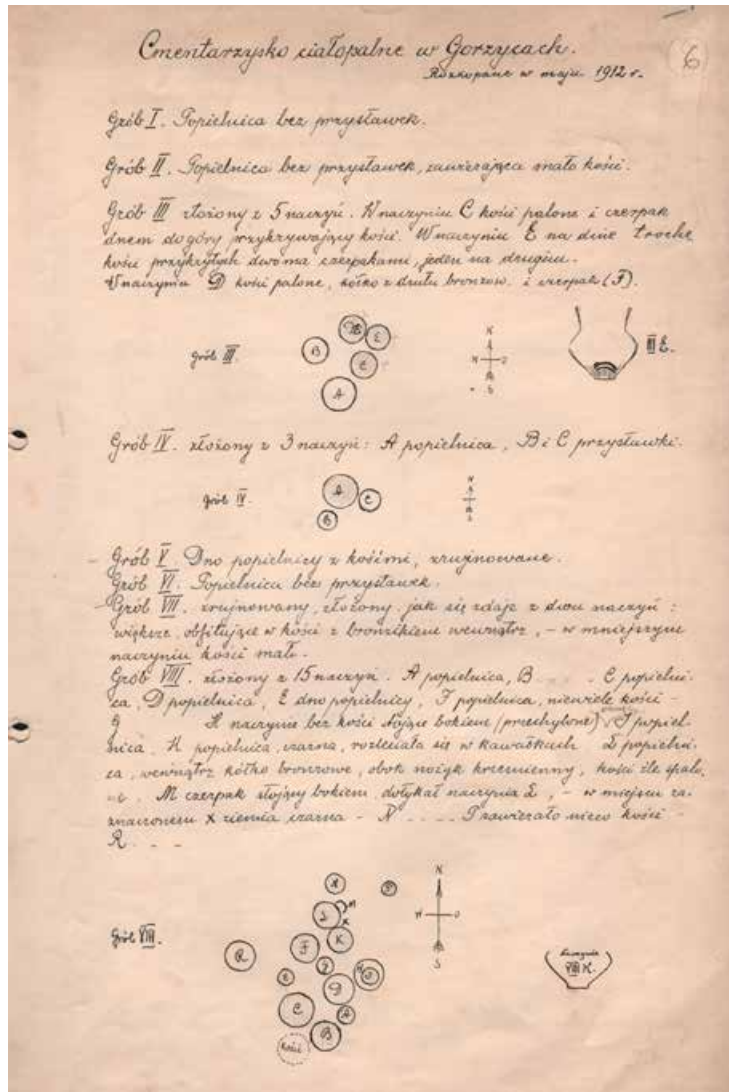 Cmentarzysko ciałopalne w Gorzycach.
Rozkopane w maju 1912 r.
6
Grób I. Popielnica bez przystawek.
Grób II. Popielnica bez przystawek, zawierająca mało kości.
Grób III złożony z 5 naczyń. W naczyniu C kości palone i czerpak
dnem do góry przykrywający kości. W naczyniu E na dnie trochę
kości przykrytych dwoma czerpakami, jeden na drugim.
W naczyniu D kości palone, kółko z drutu bronzow. i czerpak (F).
Grób III.
B
E
C
A
N
W
O
S
III E.
Grób IV. złożony z 3 naczyń: A popielnica, B i C przystawki.
Grób IV.
A
C
B
N
S
Grób V. Dno popielnicy z kośćmi, zrujnowane.
Grób VI. Popielnica bez przystawek.
Grób VII. zrujnowany, złożony jak się zdaje z dwu naczyń:
większe, obfitujące w kości z bronzikiem wewnątrz, – w mniejszym
naczyniu kości mało.
Grób VIII. złożony z 15 naczyń. A popielnica, B . . . . C popielni-
ca, D popielnica, E dno popielnicy, F popielnica, niewiele kości –
G H naczynie bez kości stojące bokiem (przechylone) J popiel-
nica. K popielnica, czarna, rozleciała się w kawałkach L popielni-
ca, wewnątrz kółko bronzowe, obok nożyk krzemienny, kości źle spalo-
ne. M czerpak stojący bokiem dotykał naczynia L, – w miejscu za-
znaczonem X ziemia czarna – N . . . . P zawierało nieco kości –
R . . –
Grób VIII.
N
W
O
S
M
X
K
F
R
G
D
C
A
B
kości
VIII K.